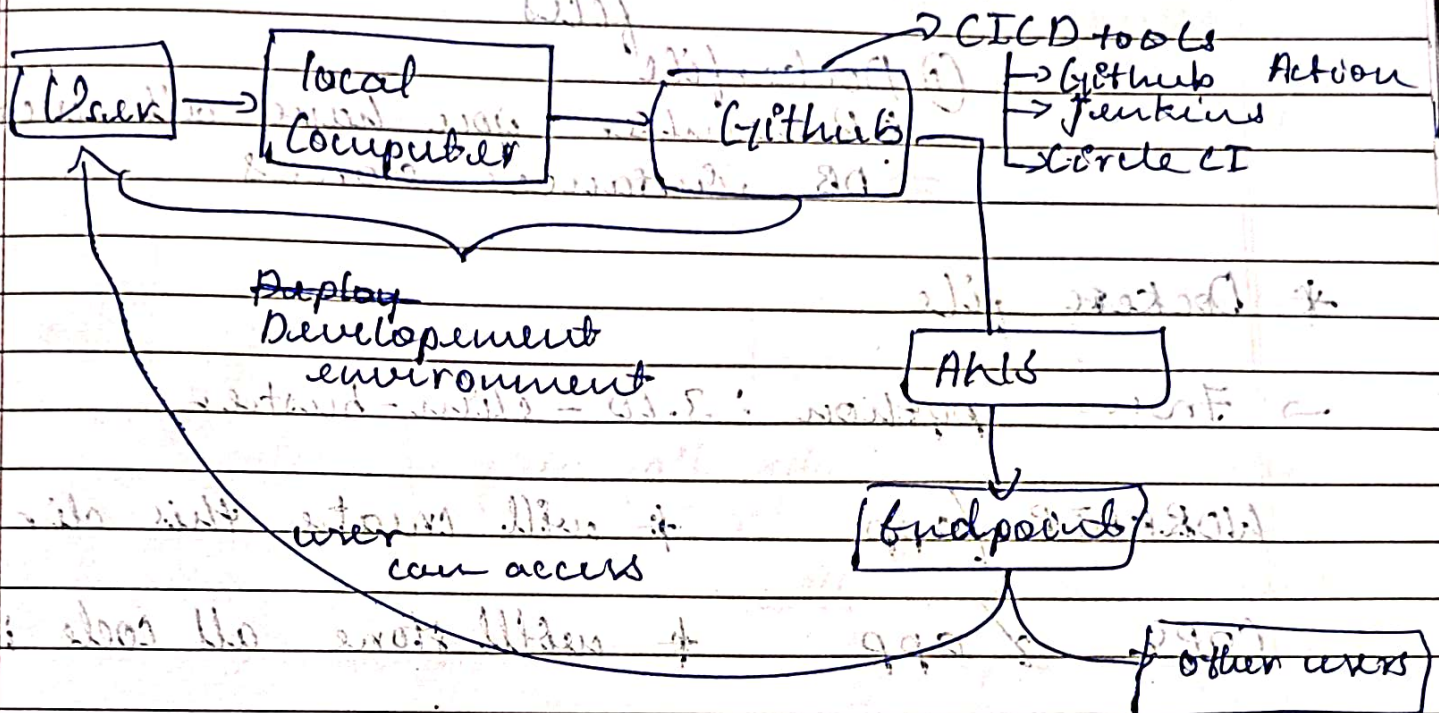 User
local
Computer
Github
CICD tools
Github Action
Jenkins
Circle CI
Deploy
Developement
environment
AWS
Endpoint
user
can access
other users